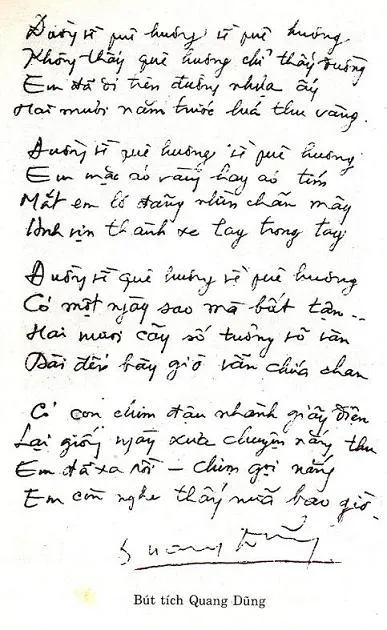 Đường về quê hương về quê hương
Không thấy quê hương chỉ thấy đường
Em đã đi trên đường nhựa ấy
Hai mươi năm trước lúa thu vàng.
Đường về quê hương về quê hương
Em mặc áo vàng hay áo tím
Mắt em lơ đãng nhìn chân mây
Anh vịn thành xe tay trong tay
Đường về quê hương về quê hương
Có một ngày sao mà bất tận...
Hai mươi cây số tưởng vô vàn
Dài đến bây giờ vẫn chứa chan
Có con chim đậu nhành giây điện
Lại giống ngày xưa chuyện nắng thu
Em đã xa rồi – chim gọi nắng
Em còn nghe thấy nữa bao giờ.
Quang Dũng
Bút tích Quang Dũng